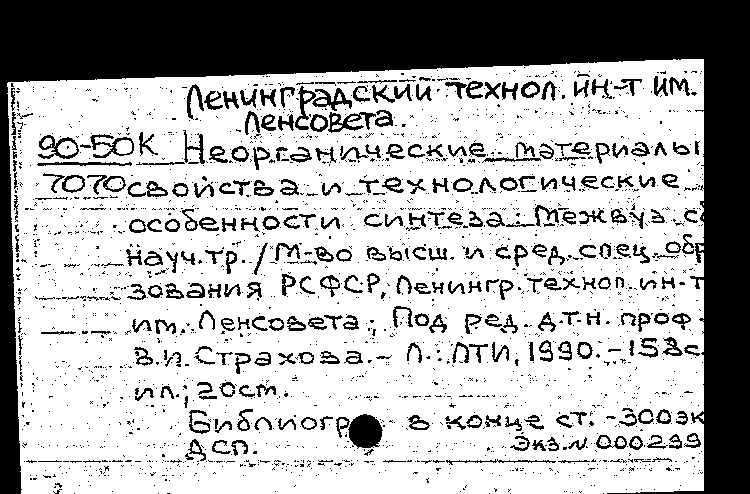 Ленинградский технол. ин-т им.
Ленсовета.
90-50К Неорганические материалы
7070 свойства и технологические
особенности синтеза: Межвуз. сб
науч.тр. / М-во высш. и сред. спец. обр
зования РСФСР, Ленингр. технол. ин-т
им. Ленсовета; Под ред. д.т.н. проф.
В.И. Страхова. – Л.: ЛТИ, 1990. – 158с.
ил.; 20см.
Библиогр в конце ст. - 300эк
ДСП. Экз.N 000299